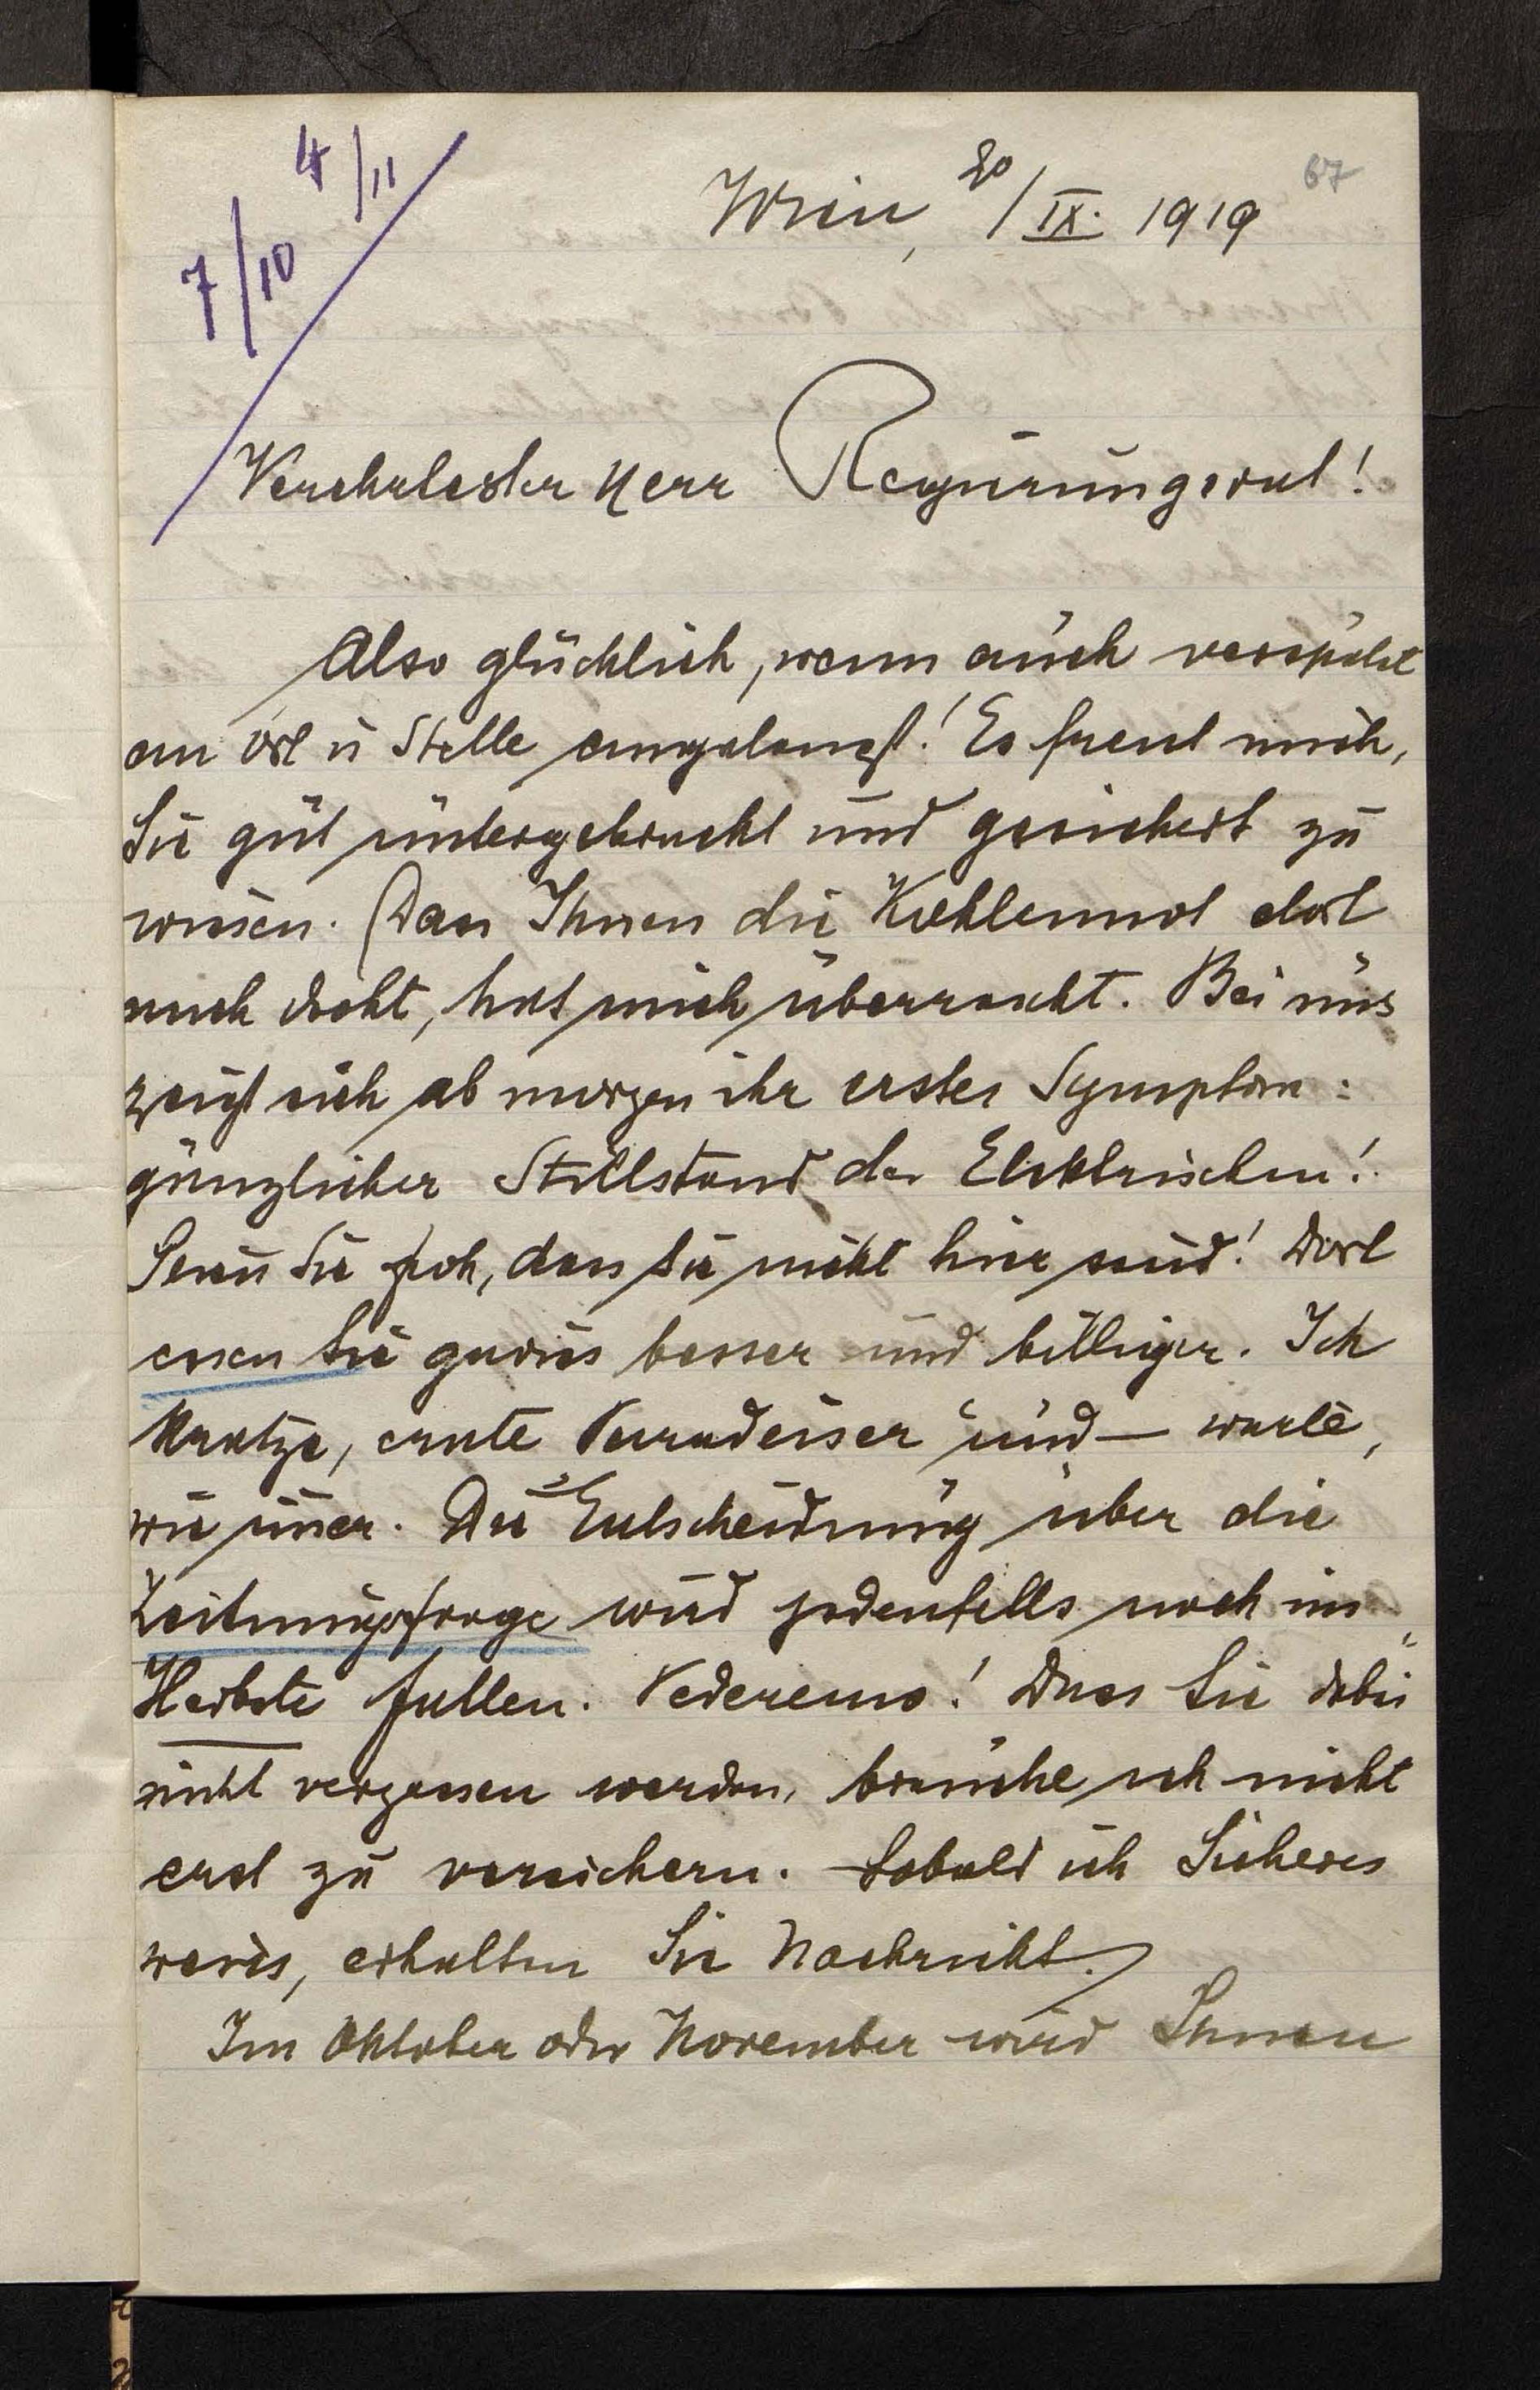 4/11
7/10
67
Wien, 20/IX. 1919
Verehrtester Herr Regierungsrat!
Also glücklich, wenn auch verspätet
an Ort u Stelle angelangt! Es freut mich,
Sie gut untergebracht und gesichert zu
wissen. (Dass Ihnen die Kohlennot dort
auch droht, hat mich überrascht. Bei uns
zeigt sich ab morgen ihr erstes Symptom:
gänzlicher Stillstand der Elektrischen!
Seien Sie froh, dass Sie nicht hier sind! Dort
essen Sie gewiss besser und billiger. Ich
kratze, ernte Paradeiser und – warte,
wie im̅er. Die Entscheidung über die
Zeitungsfrage wird jedenfalls noch im
Herbste fallen. Vederemo! Dass Sie dabei
nicht vergessen werden, brauche ich nicht
erst zu versichern. Sobald ich Sicheres
weiss, erhalten Sie Nachricht.)
Im Oktober oder November wird Ihnen